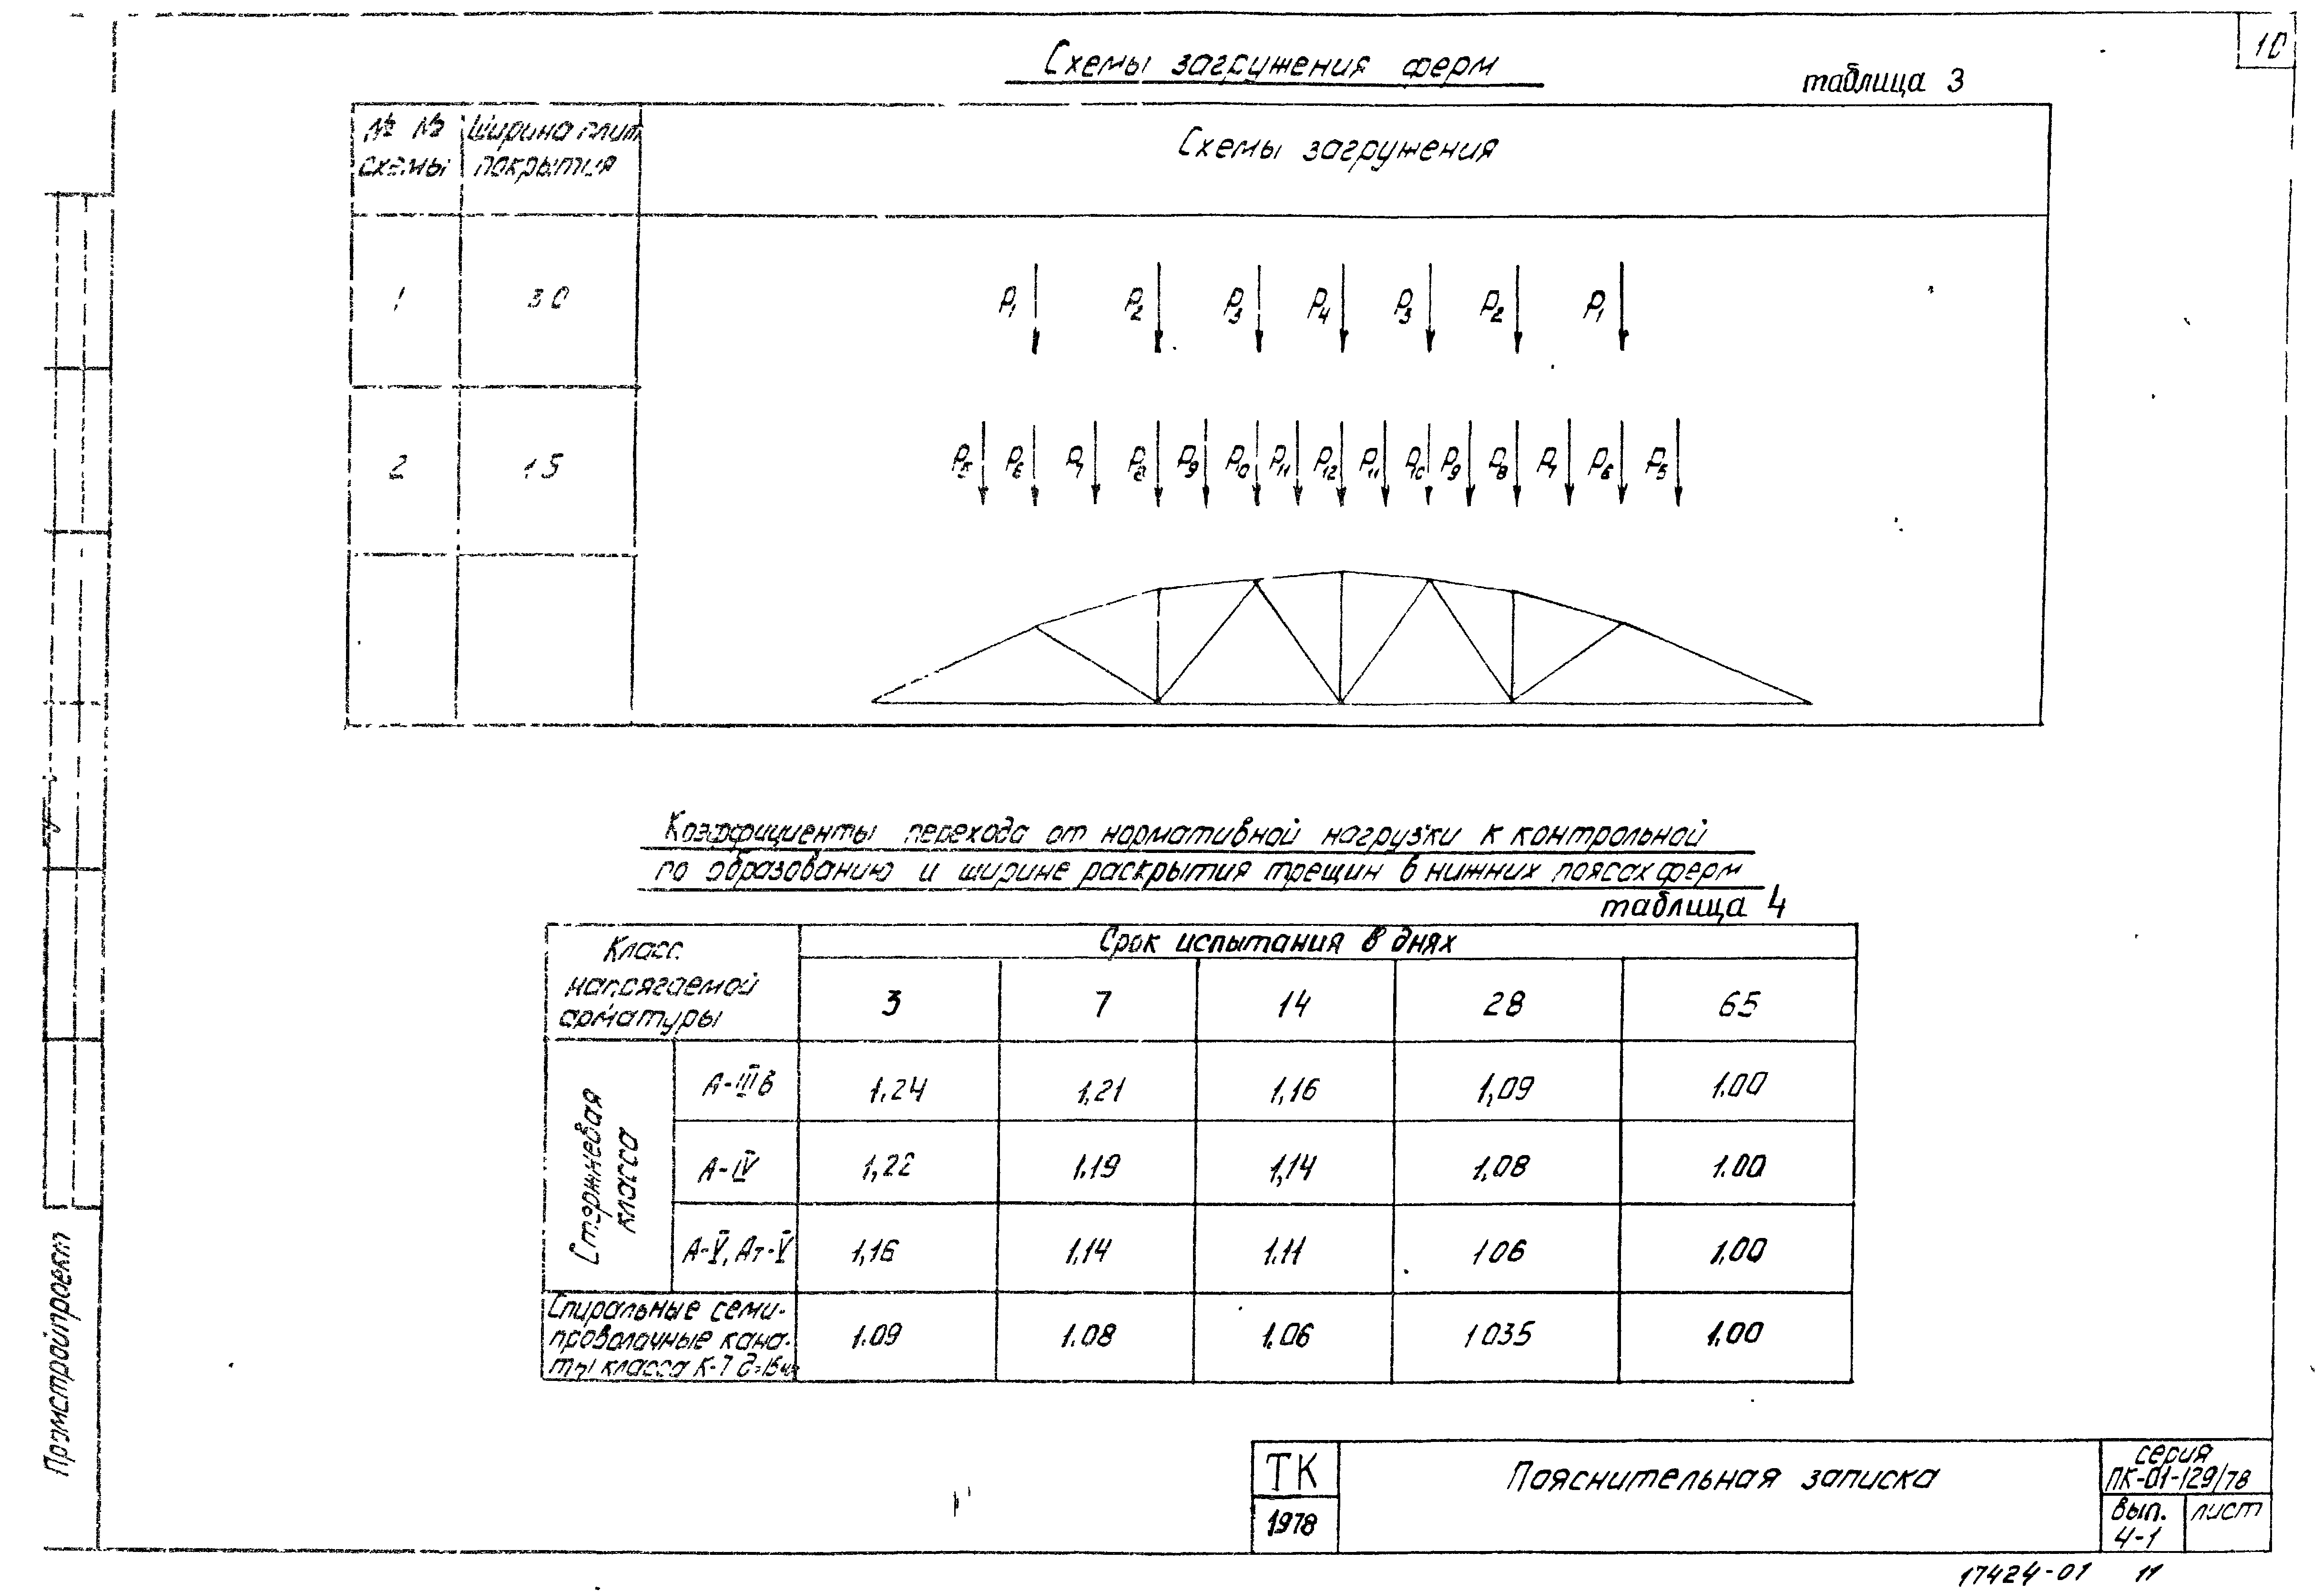 10
Схемы загружения ферм
таблица 3
№ № схемы
Ширина плит покрытия
Схемы загружения
1
30
P1 P2 P3 P4 P3 P2 P1
2
15
P5 P6 P7 P8 P9 P10 P11 P12 P11 P10 P9 P8 P7 P6 P5
Коэффициенты перехода от нормативной нагрузки к контрольной
по образованию и ширине раскрытия трещин в нижних поясах ферм
таблица 4
Класс напрягаемой арматуры
Срок испытания в днях
3 7 14 28 65
Стержневая класса
А-IIIв 1.24 1,21 1,16 1,09 1.00
А-IV 1,22 1.19 1,14 1,08 1.00
А-V, Ат-V 1,16 1,14 1.11 106 1,00
Спиральные семи-
проволочные кана-
ты класса К-7 d=15мм
1.09 1.08 1.06 1035 1.00
Промстройпроект
ТК
1978
Пояснительная записка
серия
ПК-01-129/78
вып.
4-1
лист
17424-01 11